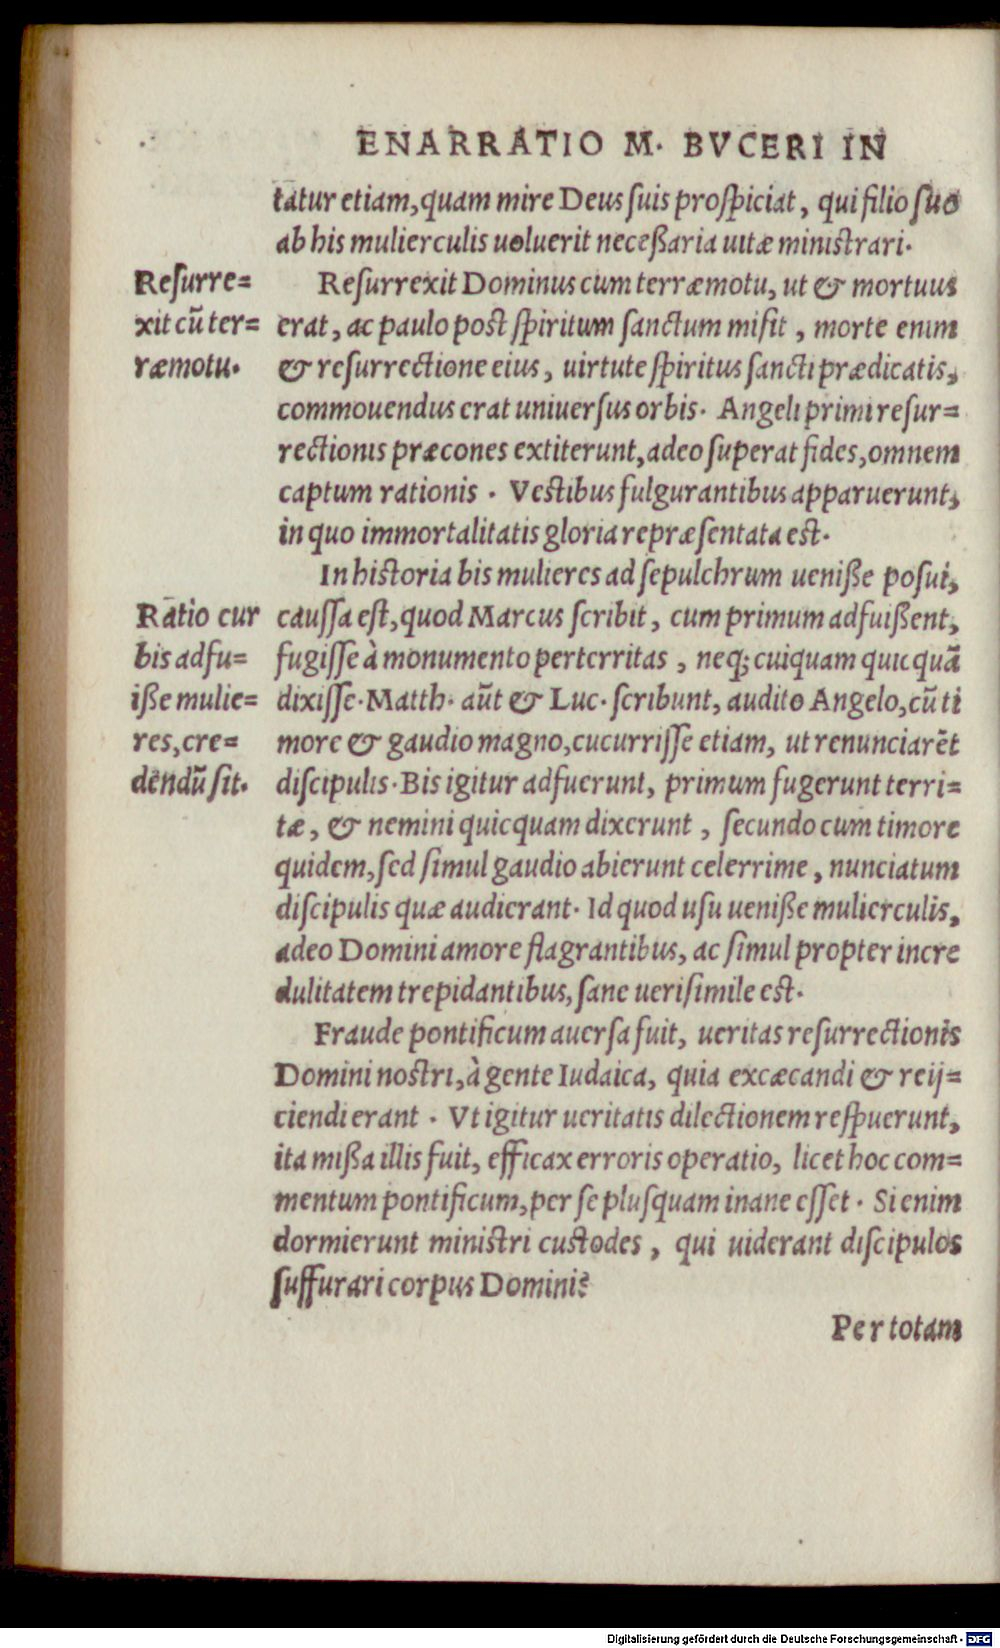 ENARRATIO M. BVCERI IN
tatur etiam, quam mire Deus ſuis proſpiciat, qui filio ſuo
ab his mulierculis uoluerit neceßaria uitæ miniſtrari.
Reſurre=
xit cũ ter=
ræmotu.
Reſurrexit Dominus cum terræmotu, ut & mortuus
erat, ac paulo poſt ſpiritum ſanctum miſit, morte enim
& reſurrectione eius, uirtute ſpiritus ſancti prædicatis,
commouendus erat uniuerſus orbis. Angeli primi reſur=
rectionis præcones extiterunt, adeo ſuperat fides, omnem
captum rationis. Veſtibus fulgurantibus apparuerunt,
in quo immortalitatis gloria repræſentata eſt.
Ratio cur
bis adfu=
iße mulie=
res, cre=
dendũ ſit.
In hiſtoria bis mulieres ad ſepulchrum ueniße poſui,
cauſſa eſt, quod Marcus ſcribit, cum primum adfuißent,
fugiſſe à monumento perterritas, neq; cuiquam quicquã
dixiſſe. Matth. aũt & Luc. ſcribunt, audito Angelo, cũ ti
more & gaudio magno, cucurriſſe etiam, ut renunciarẽt
diſcipulis. Bis igitur adfuerunt, primum fugerunt terri=
tæ, & nemini quicquam dixerunt, ſecundo cum timore
quidem, ſed ſimul gaudio abierunt celerrime, nunciatum
diſcipulis quæ audierant. Id quod uſu ueniße mulierculis,
adeo Domini amore flagrantibus, ac ſimul propter incre
dulitatem trepidantibus, ſane ueriſimile eſt.
Fraude pontificum auerſa fuit, ueritas reſurrectionis
Domini noſtri, à gente Iudaica, quia excæcandi & reij=
ciendi erant. Vt igitur ueritatis dilectionem reſpuerunt,
ita mißa illis fuit, efficax erroris operatio, licet hoc com=
mentum pontificum, per ſe pluſquam inane eſſet. Si enim
dormierunt miniſtri cuſtodes, qui uiderant diſcipulos
ſuffurari corpus Domini?
Per totam
Digitalisierung gefördert durch die Deutsche Forschungsgemeinschaft - DFG